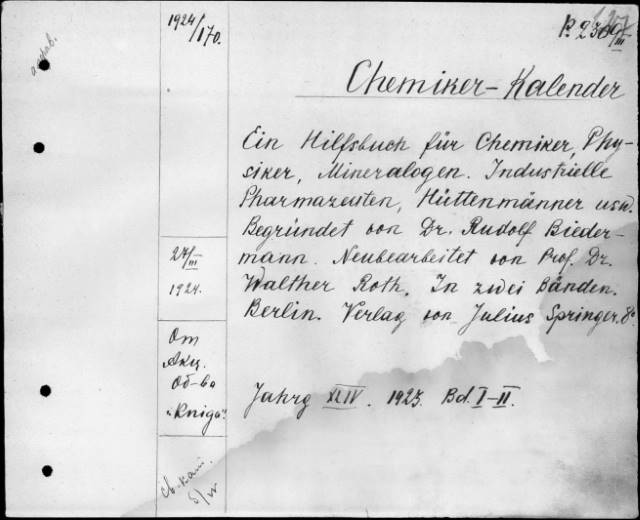 1924/170.
Chemiker-Kalender
Ein Hilfsbuch für Chemiker, Phy-
siker, Mineralogen. Industrielle
Pharmazeuten, Hüttenmänner usw.
Begründet von Dr. Rudolf Bieder-
mann. Neubearbeitet von Prof. Dr.
Walther Roth. In zwei Bänden.
Berlin. Verlag von Julius Springer. 8°
27/III
1924.
От
Акц.
Об-ва
"Kniga".
Jahrg XLIV. 1923. Bd. I-II.